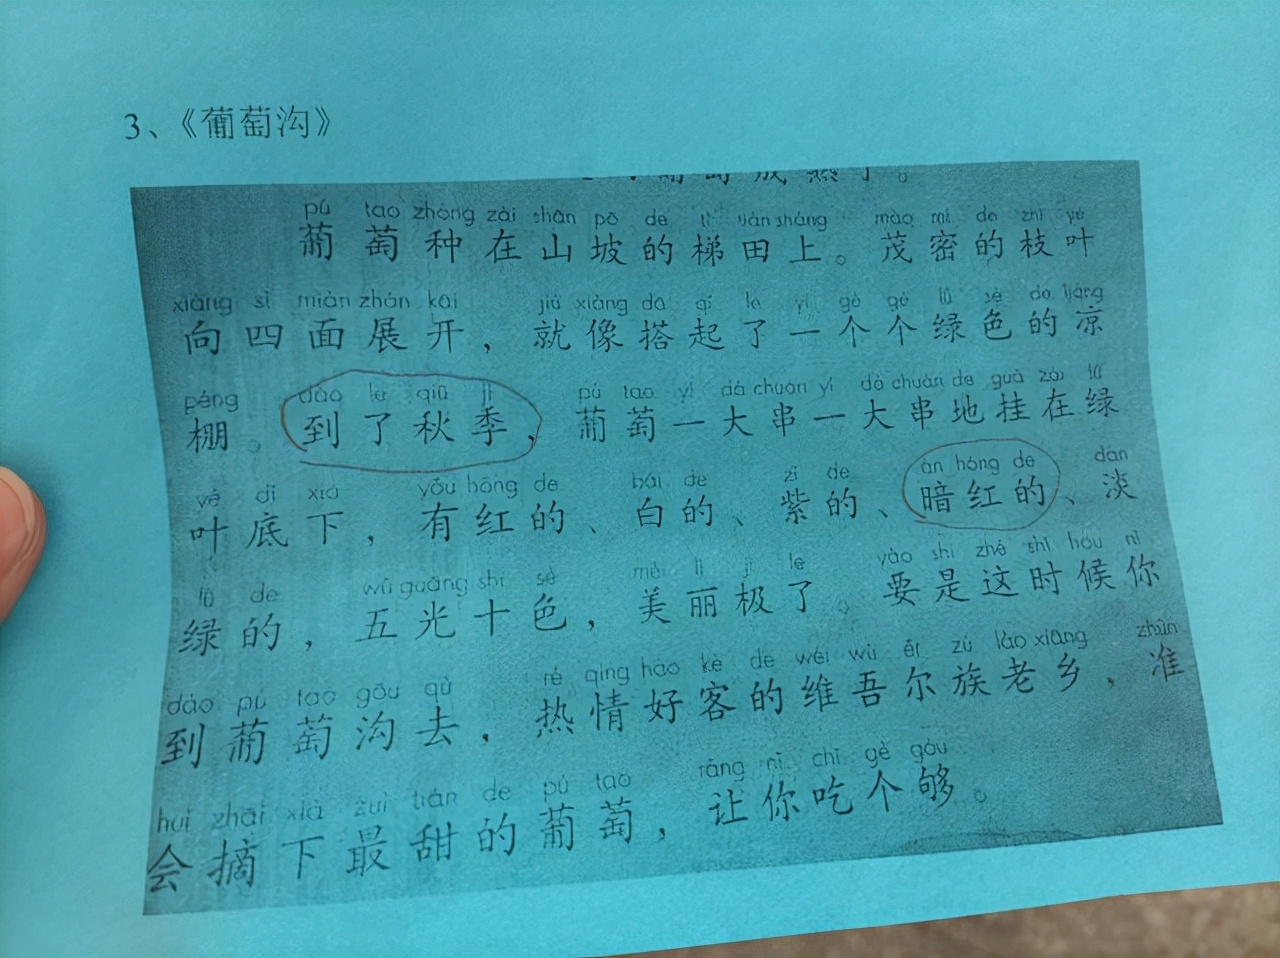 3、《葡萄沟》
pú tao zhòng zài shān pō de tī tián shàng mào mì de zhī yè
葡萄种在山坡的梯田上。茂密的枝叶
xiàng sì miàn zhǎn kāi jiù xiàng dā qǐ le yí gè gè lǜ sè de liáng
向四面展开，就像搭起了一个个绿色的凉
péng dào le qiū jì pú tao yí dà chuàn yí dà chuàn de guà zài lǜ
棚。到了秋季，葡萄一大串一大串地挂在绿
yè dǐ xià yǒu hóng de bái de zǐ de àn hóng de dàn
叶底下，有红的、白的、紫的、暗红的、淡
lǜ de wǔ guāng shí sè měi lì jí le yào shi zhè shí hòu nǐ
绿的，五光十色，美丽极了。要是这时候你
dào pú tao gōu qù rè qíng hào kè de wéi wú ěr zú lǎo xiāng zhǔn
到葡萄沟去，热情好客的维吾尔族老乡，准
huì zhāi xià zuì tián de pú tao ràng nǐ chī gè gòu
会摘下最甜的葡萄，让你吃个够。